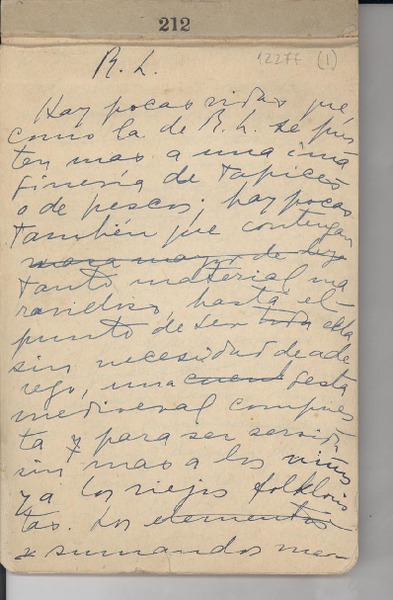 212
12277 (1)
R. L.
Hay pocas vidas que
como la de R. L. se pres
ten mas a una ima
ginería de tapices
o de frescos. Hay pocas
también que contengan
mayor de
tanto material ma
ravilloso, hasta el
punto de ser toda ella
sin necesidad de ade
rezo, una cuent gesta
medioeval compues
ta y para ser servida
sin mas a los niños
y a los viejos folkloris
tas. Los elementos
sumandos mer